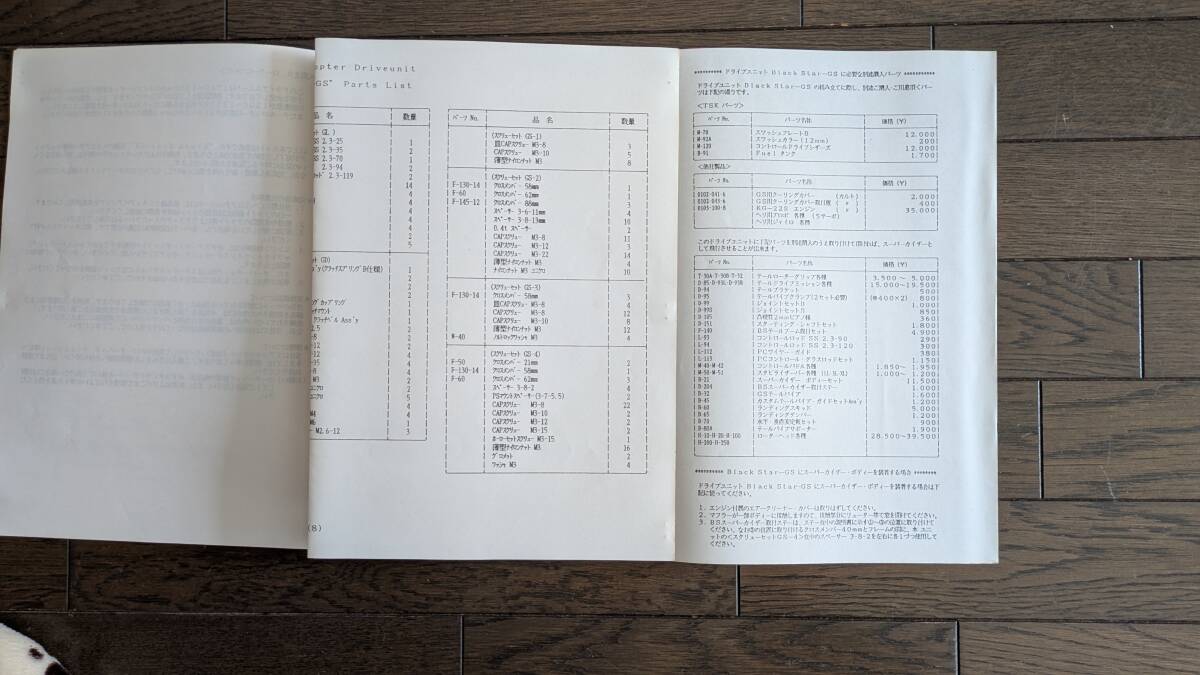 opter Driveunit
GS" Parts List
品 名 数量
ット GL)
SS 2.3-25 1
SS 2.3-35 2
SS 2.3-70 1
SS 2.3-94 2
ッド 2.3-119 2
14
4
4
10
4
2
5
ット GD)
2
2
2
1
1
1
2.5 2
-8 2
-12 4
-12 4
-35 4
-8 4
M3 2
ユニクロ 2
5
M4 4
M6 1
- M2.6-12 3
(8)
パーツ No. 品 名 数量
(スクリューセット GS-1)
皿CAPスクリュー M3-8 3
CAPスクリュー M3-10 5
薄型ナイロンナット M3 8
(スクリューセット GS-2)
F-130-14 クロスメンバー 58mm 1
F-60 クロスメンバー 62mm 1
F-145-12 クロスメンバー 88mm 3
スペーサー 3-6-11mm 4
スペーサー 3-8-13mm 10
0.4t スペーサー 2
CAPスクリュー M3-8 11
CAPスクリュー M3-12 3
CAPスクリュー M3-22 14
薄型ナイロンナット M3 4
ナイロンナット M3 ユニクロ 10
(スクリューセット GS-3)
F-130-14 クロスメンバー 58mm 3
皿CAPスクリュー M3-8 4
CAPスクリュー M3-8 12
CAPスクリュー M3-10 8
薄型ナイロンナット M3 12
W-40 ノルトロックワッシャ M3 4
(スクリューセット GS-4)
F-50 クロスメンバー 21mm 2
F-130-14 クロスメンバー 58mm 2
F-60 クロスメンバー 62mm 3
スペーサー 3-8-2 4
PSマウントスペーサー (3-7-5.5) 2
CAPスクリュー M3-8 22
CAPスクリュー M3-10 2
CAPスクリュー M3-12 2
CAPスクリュー M3-15 2
ホーローセットスクリュー M3-15 1
薄型ナイロンナット M3 16
グロメット 2
ワッシャ M3 4
********** ドライブユニット Black Star-GS に必要な別途購入パーツ ***********
ドライブユニット Black Star-GS の組み立てに際し、別途ご購入・ご用意頂くパー
ツは下記の通りです。
<TSK パーツ>
パーツ No. パーツ名称 価格 (¥)
M-70 スワッシュプレートD 12,000
M-92A スワッシュカラー (12mm) 200
M-120 コントロールドライブシザーズ 12,000
B-91 Fuel タンク 1,700
<他社製品>
パーツ No. パーツ名称 価格 (¥)
GS用クーリングカバー (カルト) 2,000
GS用クーリングカバー取付板 ( 〃 ) 400
KG-22S エンジン ( 〃 ) 35,000
ヘリ用プロポ 各種 (5サーボ)
ヘリ用ジャイロ 各種
このドライブユニットに下記パーツを別途購入のうえ取り付けて頂ければ、スーパーカイザーと
して飛行させることが出来ます。
パーツ No. パーツ名称 価格 (¥)
T-30A・T-30B・T-32 テールローターグリップ各種 3,500 ~ 5,000
D-85・D-93L・D-93R テールドライブミッション各種 15,000~19,500
D-94 テールブラケット 500
D-95 テールパイプクランプ(2セット必要) (@400×2) 800
D-99 ジョイントセットD 1,000
D-99S ジョイントセットJ 850
D-105 凸型2mmピアノ線 360
D-151 スターティング・シャフトセット 1,800
F-149 BSテールブーム取付セット 4,900
L-93 コントロールロッド SS 2.3-90 290
L-94 コントロールロッド SS 2.3-120 300
L-112 PCワイヤー・ガイド 380
L-113 PCコントロール・グラスロッドセット 1,150
M-40・M-42 コントロールパドル各種 1,850 ~ 1,950
M-50・M-51 スタビライザーバー各種 (LL・3L・XL) 1,000 ~ 1,200
B-21 スーパーカイザー ボディーセット 11,500
B-204 BSスーパーカイザー取付ステー 1,000
B-32 GSテールパイプ 1,600
B-45 カスタムテールパイプ・ガイドセットAss'y 1,200
B-60 ランディングスキッド 5,000
B-65 ランディングダンパー 1,200
B-70 水平・垂直安定板セット 900
B-80A テールパイプサポーター 1,900
H-10・H-20・H-100 ローターヘッド各種 28,500~39,500
H-200・H-250
******** Black Star-GS にスーパーカイザー・ボディーを装着する場合 ********
ドライブユニット Black Star-GS にスーパーカイザー・ボディーを装着する場合は下
記に従ってください。
1. エンジン付属のエアークリーナー・カバーは取りはずしてください。
2. マフラーが一部ボディーに接触しますので、接触部分にリューター等で窓を開けてください。
3. BSスーパーカイザー取付ステーは、ステー在中の説明書に示す①~④の位置に取り付けて
ください。なお④の位置に取り付けるクロスメンバー40mmとフレームの間に、本 ユニ
ットの<スクリューセットGS-4>在中のスペーサー 3-8-2を左右に各1づつ使用して
ください。